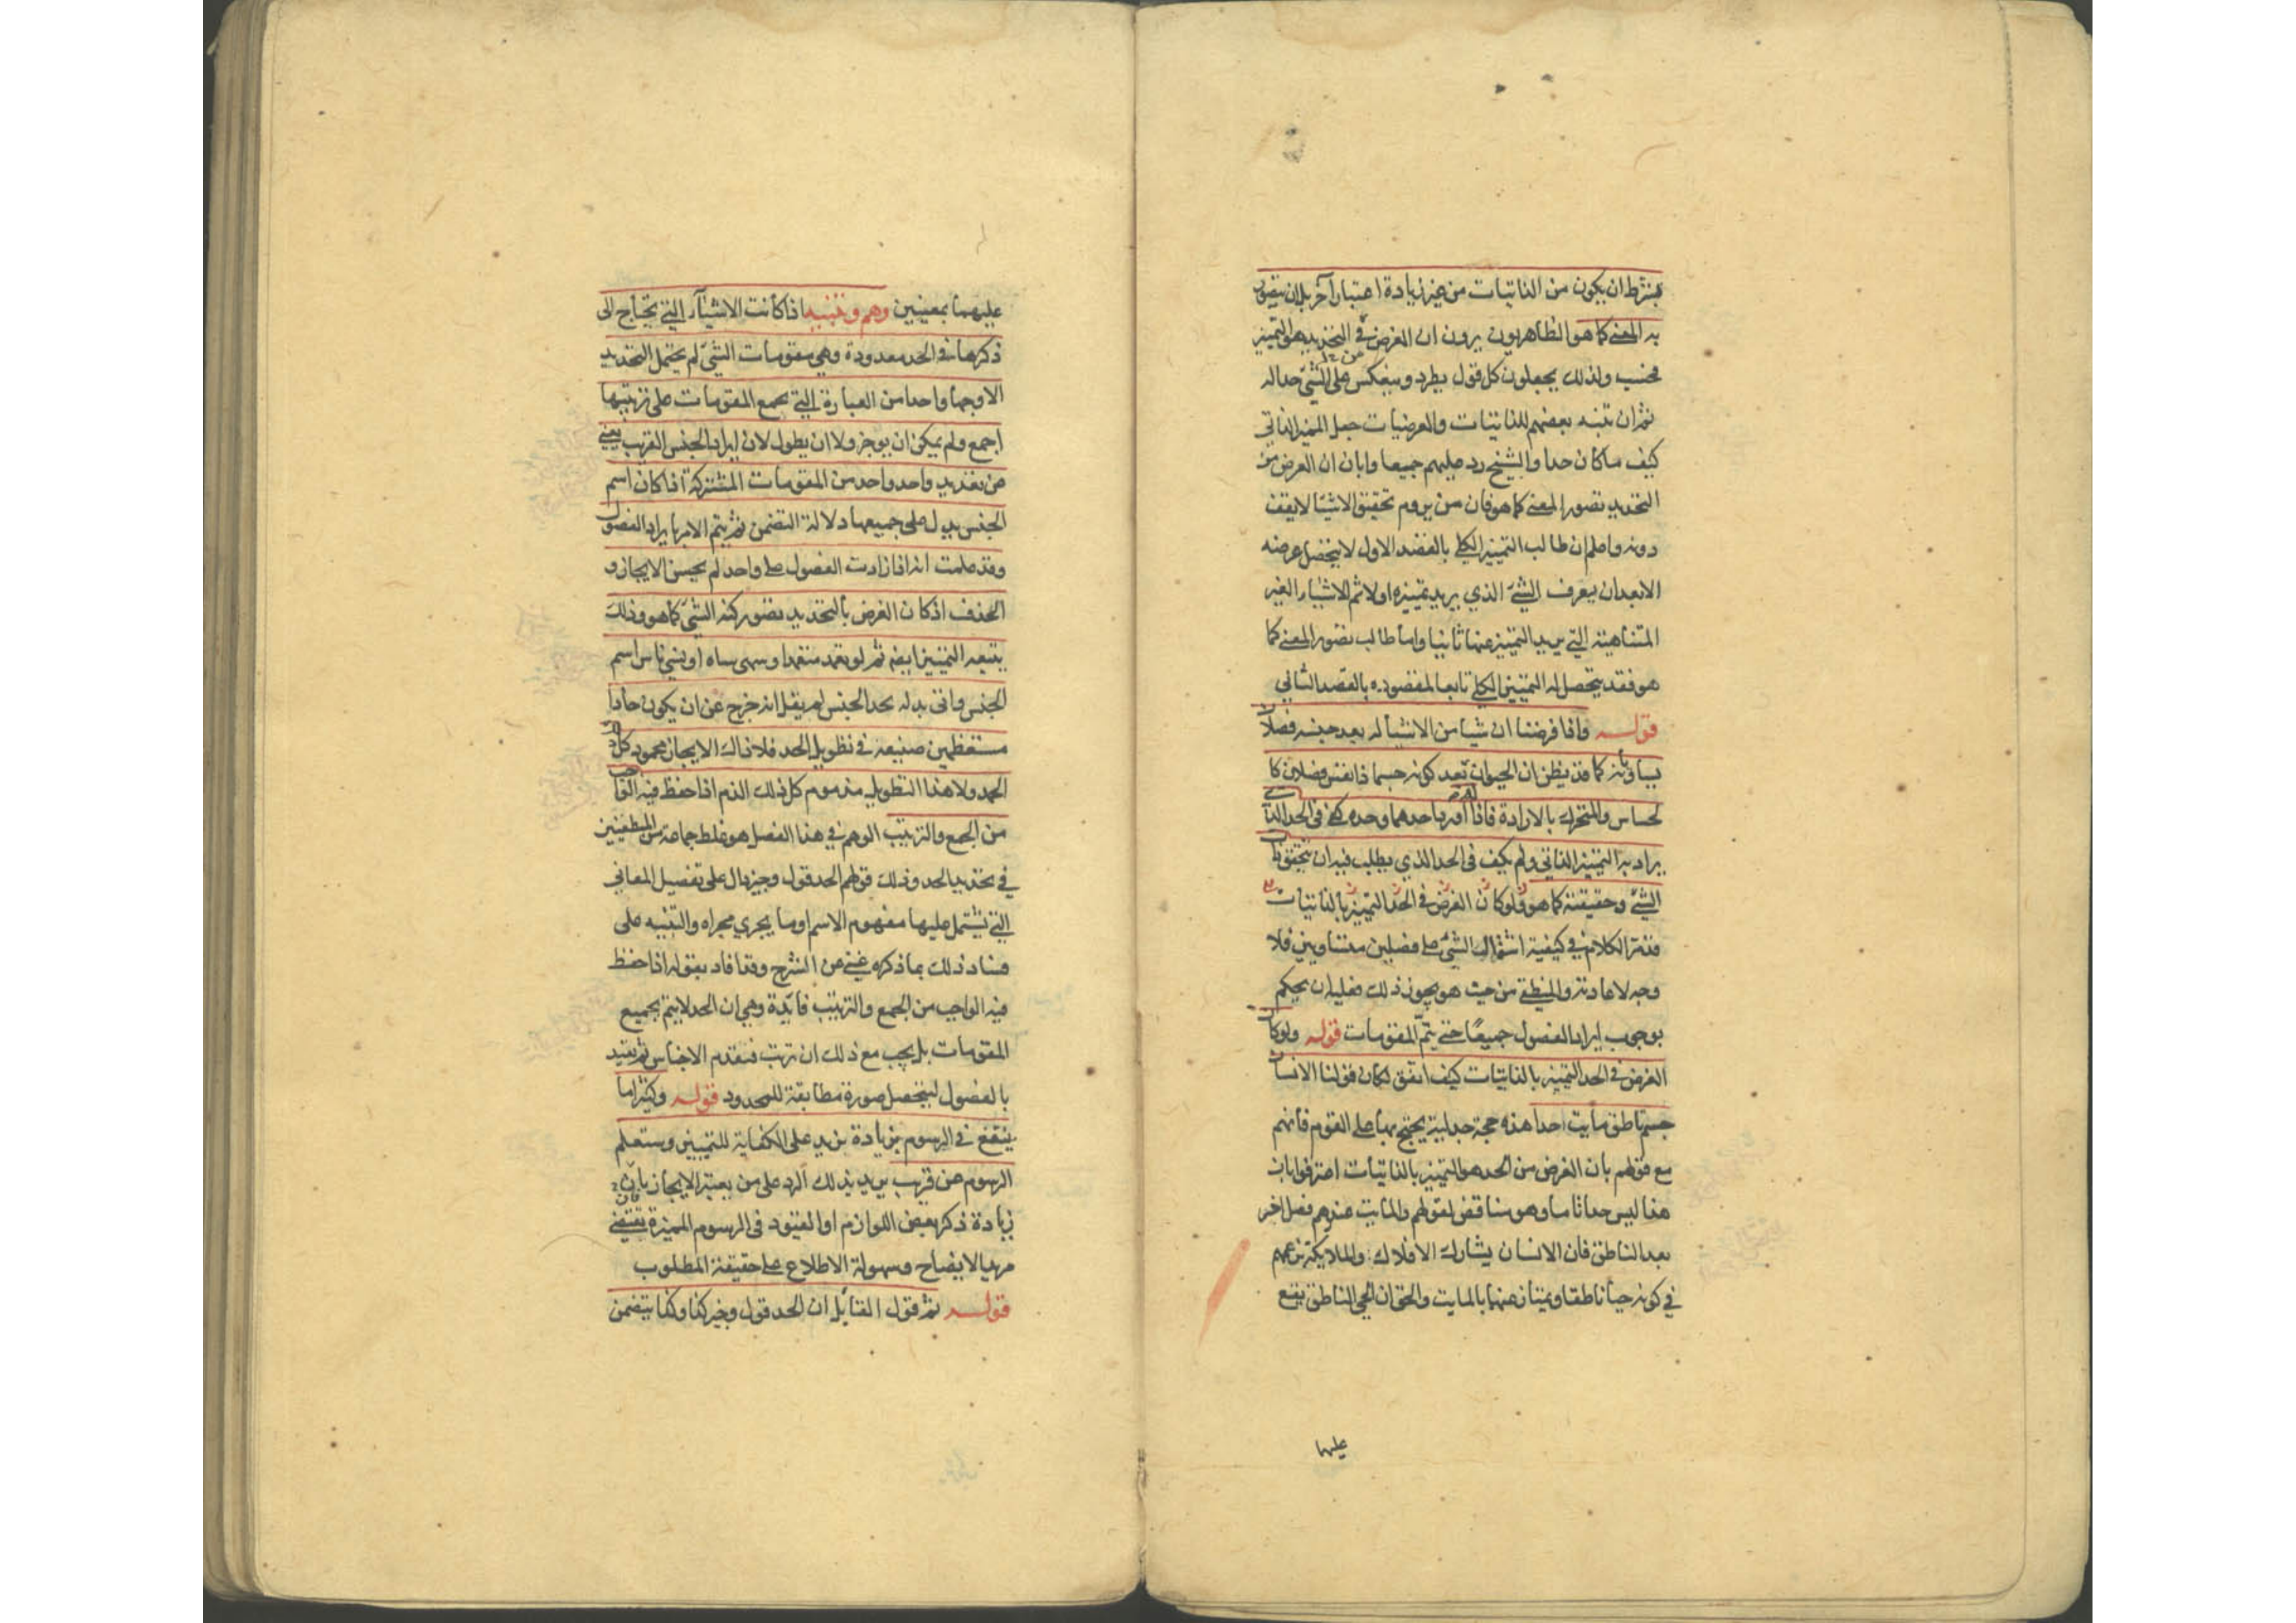 بشرط ان يكون من الذاتيات من غير زيادة اعتبار آخر بل ان يتصور
به المعنى كما هو الظاهريون يرون ان الغرض في التحديد هو التميز
فحسب ولذلك يجعلون كل قول يطرد وينعكس على الشئ حدا له
ثم ان تنبه بعضهم للذاتيات والعرضيات جعل المميز الذاتي
كيف ما كان حدا والشيخ رد عليهم جميعا وابان ان الغرض من
التحديد تصور المعنى كما هو فان من يروم تحقيق الاشيا لا يقف
دونه واعلم ان طالب التميز الكلي بالقصد الاول لا يتحصل غرضه
الا بعد ان يعرف الشئ الذي يريد تميزه اولا ثم الاشياء الغير
المتناهية التي يريد التميز عنها ثانيا واما طالب تصور المعنى كما
هو فقد يتحصل له التميز الكلي تابعا لمقصوده بالقصد الثاني
قوله واذا فرضنا ان شيا من الاشيا له بعد جنسه فصلان
يساويانه كما قد يظن ان الحيوان بعد كونه جسما ذا نفس فصلين كا
لحساس والمتحرك بالارادة فاذا اورد احدهما وحده كفى في الحد الذي
يراد به التميز الذاتي ولم يكف في الحد الذي يطلب فيه ان يتحقق ذات
الشئ وحقيقته كما هو ولو كان الغرض في الحد التميز بالذاتيات
قد مر الكلام في كيفية اشتمال الشئ على فصلين متساويين فلا
وجه لاعادته والمنطقي من حيث هو يجوز ذلك فعليه ان يحكم
بوجوب ايراد الفصول جميعا حتى يتم المقومات قوله ولو كان
الغرض في الحد التميز بالذاتيات كيف اتفق لكان قولنا الانسان
جسم ناطق مايت حدا هذه حجة جدلية يحتج بها على القوم فانهم
مع قولهم بان الغرض من الحد هو التميز بالذاتيات اعترفوا بان
هذا ليس حدا تاما وهو مناقض لقولهم والمايت عندهم فصل اخر
بعد الناطق فان الانسان يشارك الافلاك والملايكة بزعمهم
في كونه حيا ناطقا ويمتاز عنهما بالمايت والحق ان الحي الناطق يقع
عليهما
عليهما بمعنيين وهم وتنبيه اذا كانت الاشيآء التي يحتاج الى
ذكرها في الحد معدودة وهي مقومات الشئ لم يحتمل التحديد
الا وجها واحدا من العبارة التي تجمع المقومات على ترتيبها
اجمع ولم يمكن ان يوجز ولا ان يطول لان ايراد الجنس القريب يغني
عن تعديد واحد واحد من المقومات المشتركة اذا كان اسم
الجنس يدل على جميعها دلالة التضمن ثم يتم الامر بايراد الفصول
وقد علمت انه اذا زادت الفصول على واحد لم يحسن الايجاز و
الحذف اذ كان الغرض بالتحديد تصور كنه الشئ كما هو وذلك
يتبعه التميز ايضا ثم لو تعمد متعمد او سهى ساه او نسي ناس اسم
الجنس واتى بدله بحد الجنس لم يقل انه خرج عن ان يكون حادا
مستعظمين صنيعه في تطويل الحد فلا ذاك الايجاز محمود كل ذلك
الحمد ولا هذا التطويل مذموم كل ذلك الذم اذا حفظ فيه الواجب
من الجمع والترتيب الوهم في هذا الفصل هو غلط جماعة من المنطقيين
في تحديد الحد وذلك قولهم الحد قول وجيز دال على تفصيل المعاني
التي يشتمل عليها مفهوم الاسم او ما يجري مجراه والتنبيه على
فساد ذلك بما ذكره غني عن الشرح وقد افاد بقوله اذا حفظ
فيه الواجب من الجمع والترتيب فايدة وهي ان الحد لا يتم بجميع
المقومات بل يجب مع ذلك ان ترتب فتقدم الاجناس ثم تقيد
بالفصول ليتحصل صورة مطابقة للمحدود قوله وكثيرا ما
ينتفع في الرسوم بزيادة يزيد على الكفاية للتميز وستعلم
الرسوم عن قريب يريد بذلك الرد على من يعتبر الايجاز بان
زيادة ذكر بعض اللوازم او القيود في الرسوم المميزة تقتضي
مزيد الايضاح وسهولة الاطلاع على حقيقة المطلوب
قوله ثم قول القايل ان الحد قول وجيز كذا وكذا يتضمن